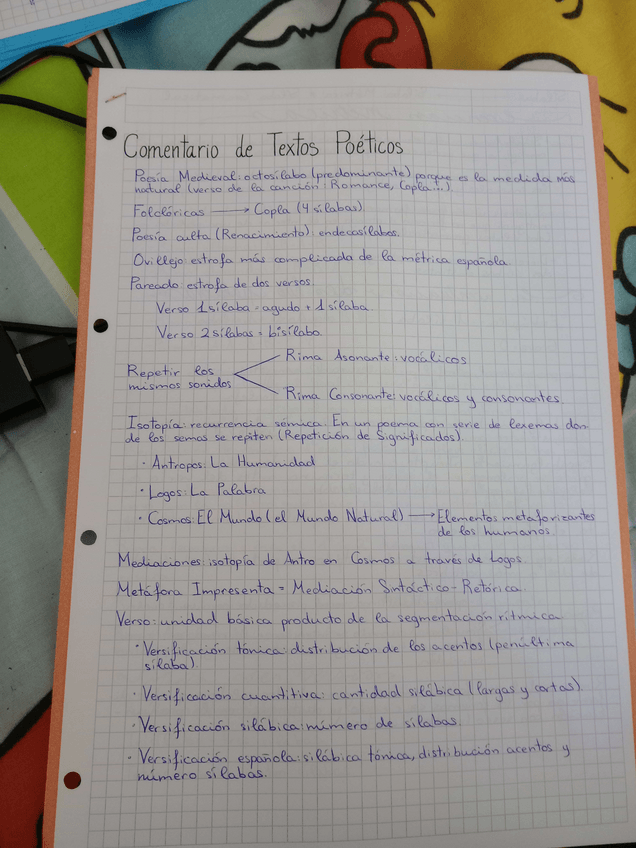 Comentario de Textos Poéticos
Poesía Medieval: octosílabo (predominante) porque es la medida más
natural (verso de la canción: Romance, Copla...).
Folclóricas → Copla (4 sílabas).
Poesía culta (Renacimiento): endecasílabos.
Ovillejo: estrofa más complicada de la métrica española.
Pareado estrofa de dos versos.
Verso 1 sílaba - agudo + 1 sílaba
Verso 2 sílabas = bisílabo.
Repetir los
mismos sonidos
Rima Asonante: vocálicos
Rima Consonante: vocálicos y consonantes.
Isotopía: recurrencia sémica. En un poema con serie de lexemas don-
de los semas se repiten (Repetición de Significados).
· Antropos: La Humanidad
· Logos: La Palabra
· Cosmos: El Mundo (el Mundo Natural) → Elementos metaforizantes
de los humanos.
Mediaciones: isotopía de Antro en Cosmos a través de Logos.
Metáfora Impresenta = Mediación Sintáctico-Retórica.
Verso: unidad básica producto de la segmentación rítmica.
· Versificación tónica: distribución de los acentos (penúltima
sílaba)
· Versificación cuantitiva: cantidad silábica (largas y cortas).
· Versificación silábica: número de sílabas.
· Versificación española: silábica tónica, distribución acentos y
número sílabas.